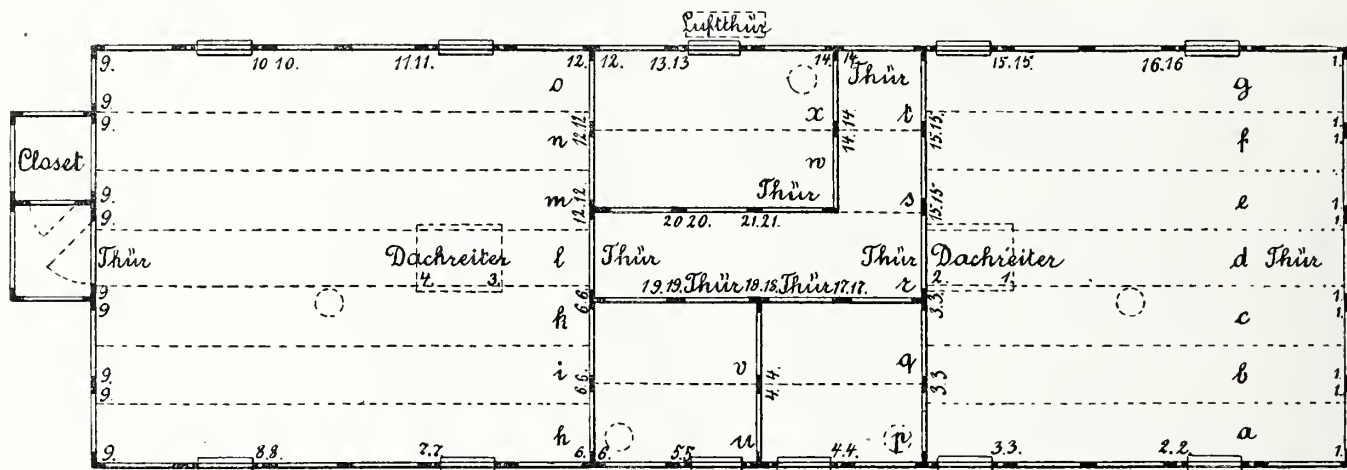 Luftthür
9. 10 10. 11.11. 12. 12. 13.13 14. 14. Thür 15.15. 16.16 1.
o x t g
9. 9. 12.12. 14.14. 15.15. 1. 1.
n w f
Closet
9. 9. m 12.12. Thür s 15.15 e 1. 1.
20 20. 21.21.
Thür Dachreiter l Thür Thür Dachreiter d Thür
4. 3. 19.19. Thür 18.18. Thür 17.17. r 2 1.
9. 9 k 6.6. 3.3. c 1. 1.
9. 9. i 6.6. v 4.4. q 3.3 b 1. 1.
9. 8.8. 7.7 h 6. 6. 5.5 u 4.4. p 3.3. 2.2. a 1.